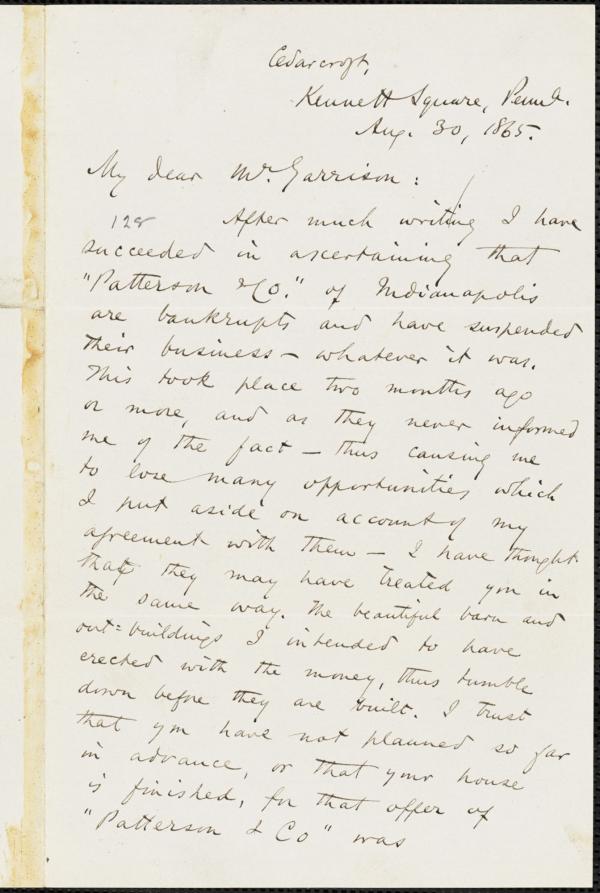 Cedarcroft,
Kennett Square, Penna.
Aug. 30, 1865.
My dear Mr. Garrison:
128 After much writing I have
succeeded in ascertaining that
"Patterson & Co." of Indianapolis
are bankrupts and have suspended
their business — whatever it was.
This took place two months ago
or more, and as they never informed
me of the fact — thus causing me
to lose many opportunities which
I put aside on account of my
agreement with them — I have thought
that they may have treated you in
the same way. The beautiful barn and
out=buildings I intended to have
erected with the money, thus tumble
down before they are built. I trust
that you have not planned so far
in advance, or that your house
is finished, for that offer of
"Patterson & Co" was